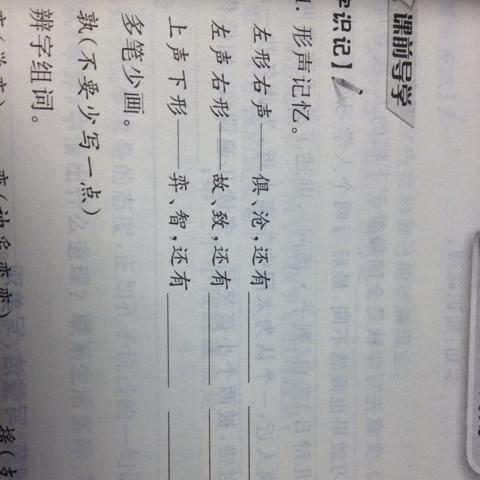 课前导学
字识记】
1. 形声记忆。
左形右声——俱、沧,还有
左声右形——故、致,还有
上声下形——弈、智,还有
多笔少画。
孰(不要少写一点)
辨字组词。